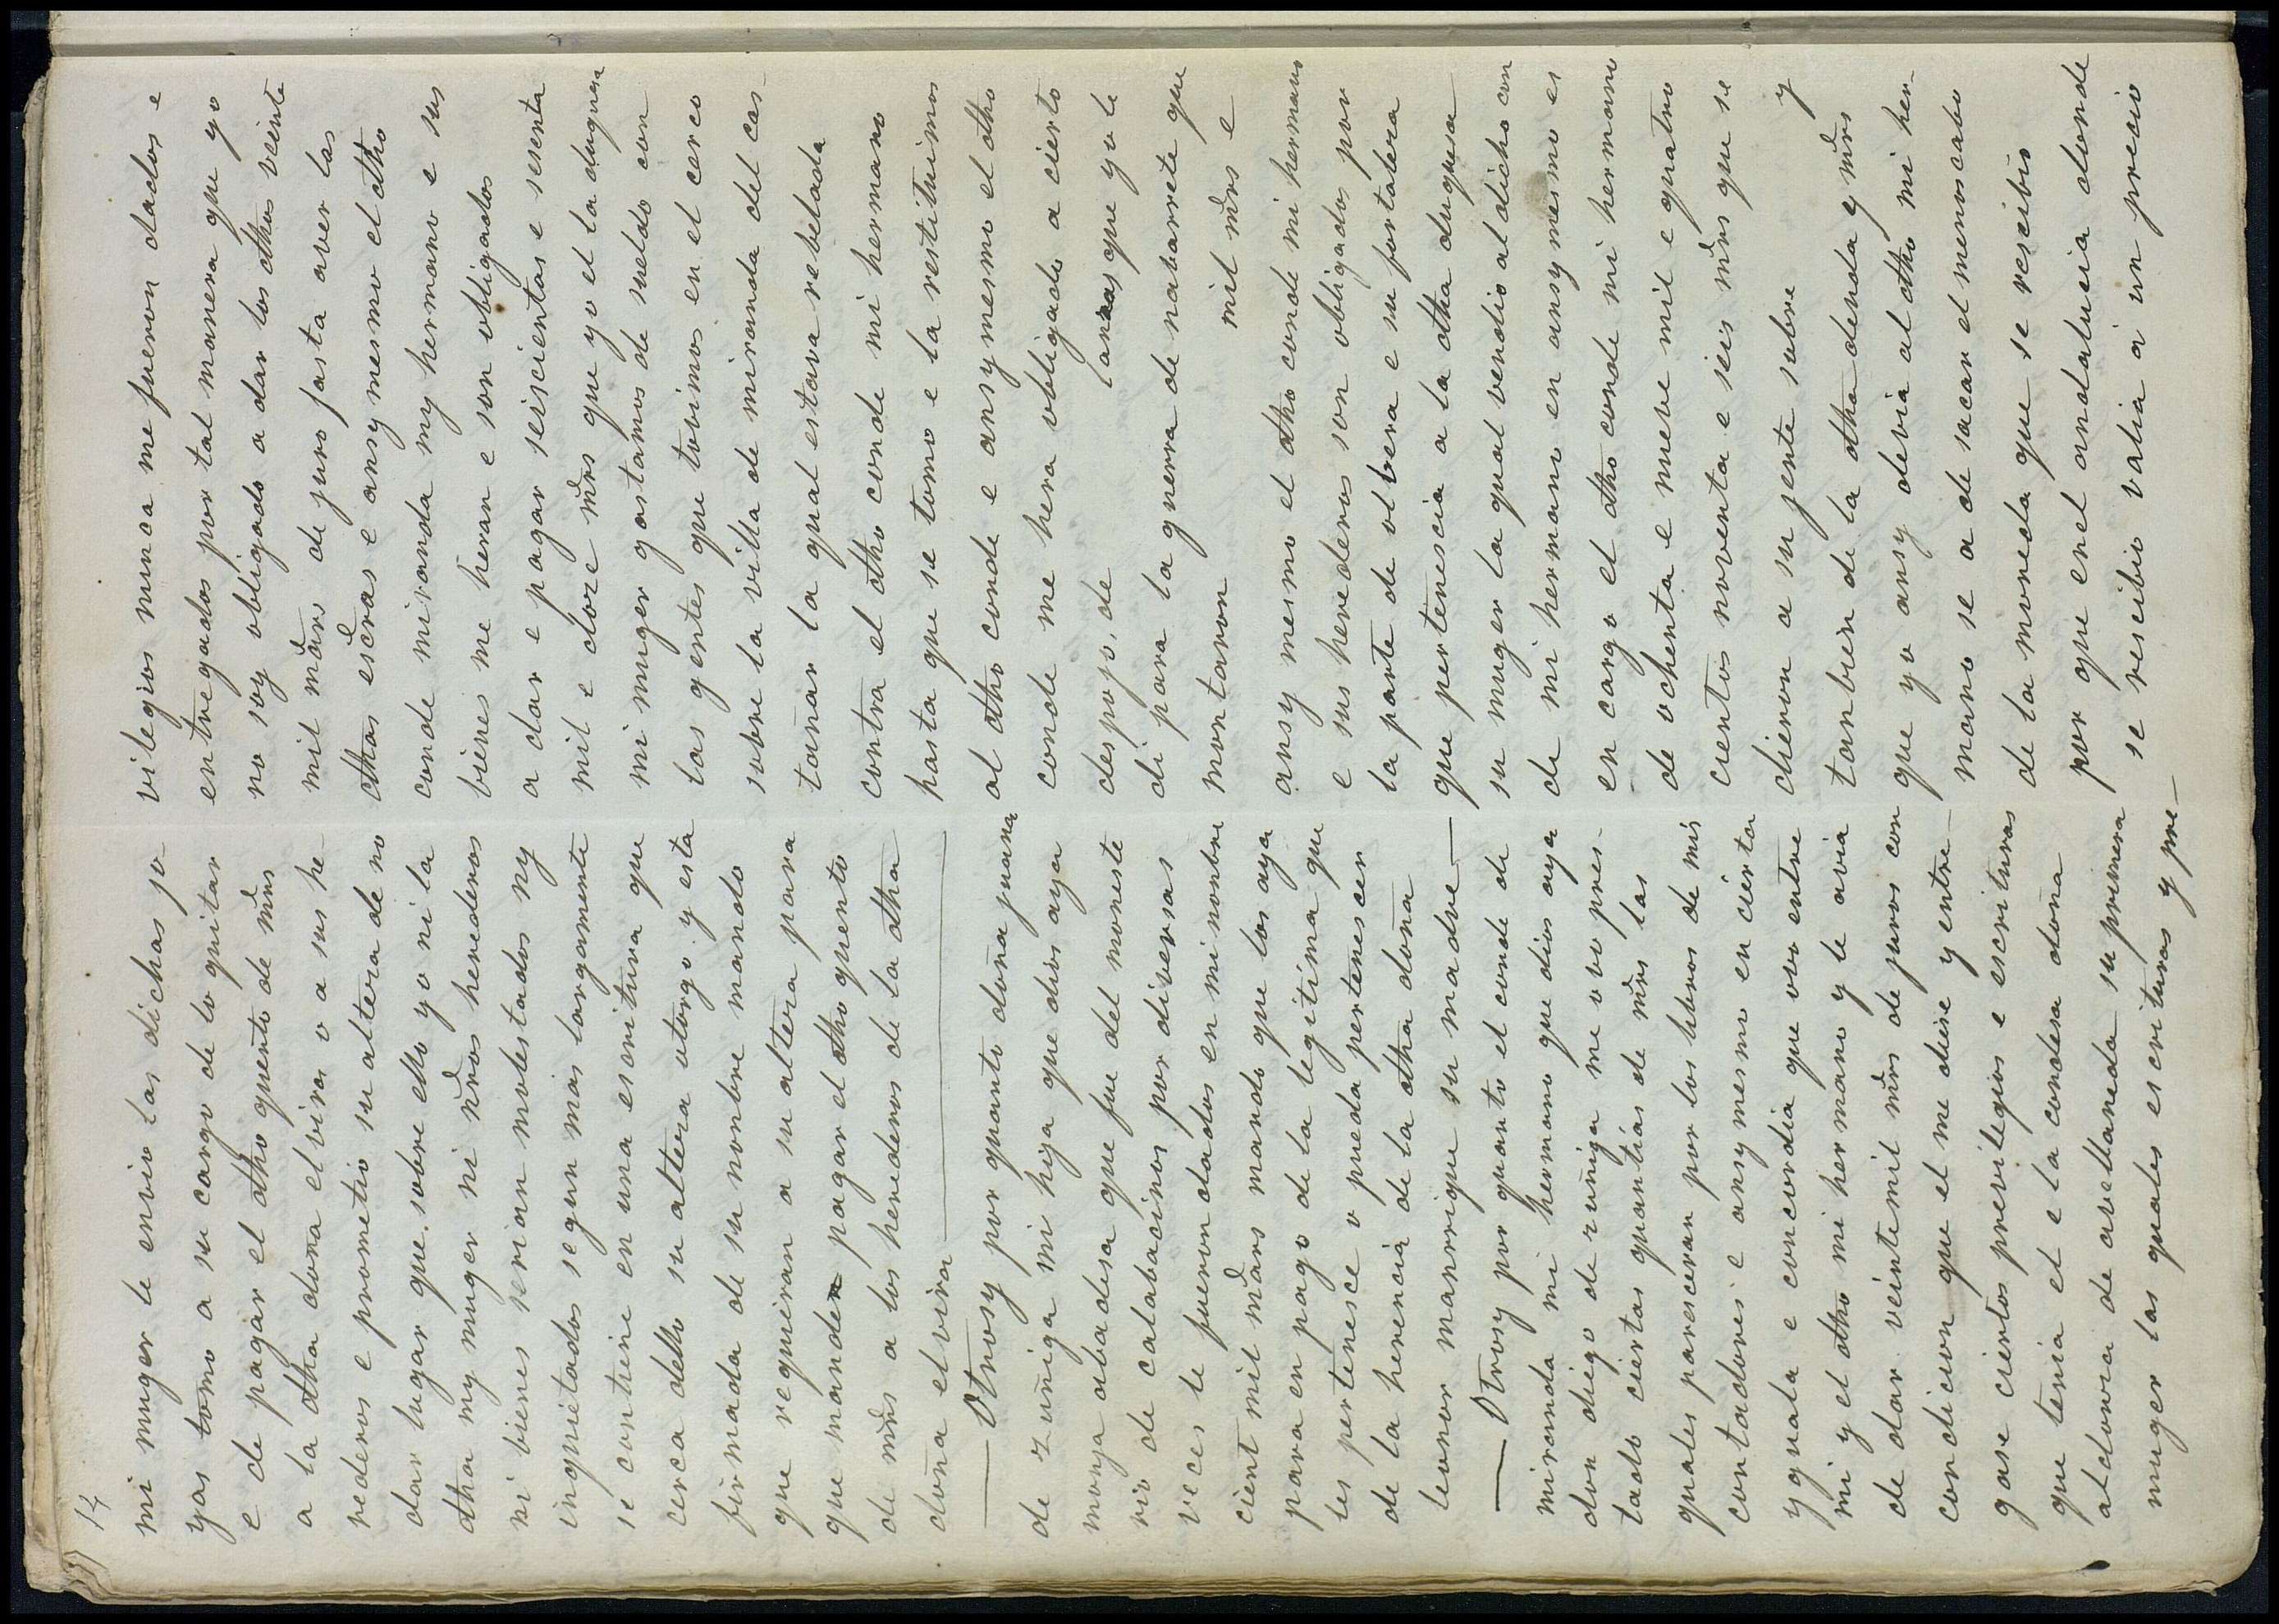 17
mi muger le envio las dichas jo-
yas tomo a su cargo de lo quitar
e de pagar el dho quento de mrs
a la dha doña elvira o a sus he-
rederos e prometio su alteza de no
dar lugar que sobre ello yo ni la
dha my muger ni nros herederos
ni bienes serian molestados ny
inquietados segun mas largamente
se contiene en una escritura que
cerca dello su alteza otorgo y esta
firmada de su nonbre mando
que requieran a su alteza para
que mande pagar el dho quento
de mrs a los herederos de la dha
doña elvira
— Otrosy por quanto doña juana
de zuñiga mi hija que dios aya
monja abadesa que fue del moneste
rio de calabacinos por diversas
veces le fueron dados en mi nonbre
cient mil mars mando que los aya
para en pago de la legitima que
les pertenesce o pueda pertenescer
de la herencia de la dha doña
leonor manrrique su madre—
— Otrosy por quanto el conde de
miranda mi hermano que dios aya
don diego de zuñiga me ovo pres-
tado ciertas quantias de mrs las
quales paresceran por los libros de mis
contadores e ansy mesmo en cierta
yguala e concordia que ovo entre
mi y el dho mi hermano y le avia
de dar veinte mil mrs de juros con
condicion que el me diese y entre-
gase ciertos previlegios e escrituras
que tenia el e la condesa doña
aldonza de avellaneda su primera
muger las quales escrituras y pre-
vilegios nunca me fueron dados e
entregados por tal manera que yo
no soy obligado a dar los dhos veinte
mil mars de juro fasta aver las
dhas escras e ansy mesmo el dho
conde miranda my hermano e sus
bienes me heran e son obligados
a dar e pagar seiscientas e sesenta
mil e doze mrs que yo e la duquesa
mi muger gastamos de sueldo con
las gentes que tovimos en el cerco
sobre la villa de miranda del cas-
tañar la qual estava rebelada
contra el dho conde mi hermano
hasta que se tomo e la restituimos
al dho conde e ansy mesmo el dho
conde me hera obligado a cierto
despojo, de lanzas que yo le
di para la guerra de nabarrete que
montaron mil mrs e
ansy mesmo el dho conde mi hermano
e sus herederos son obligados por
la parte de olbera e su fortaleza
que pertenescia a la dha duquesa
su muger la qual vendio al dicho con
de mi hermano en ansy mesmo es
en cargo el dho conde mi hermano
de ochenta e nueve mil e quatro
cientos noventa e seis mrs que se
dieron a su jente sobre y
tanbien de la dha deuda y mrs
que yo ansy devia al dho mi her-
mano se a de sacar el menoscabo
de la moneda que se rescibio
por que en el andalucia donde
se rescibio valia a un precio